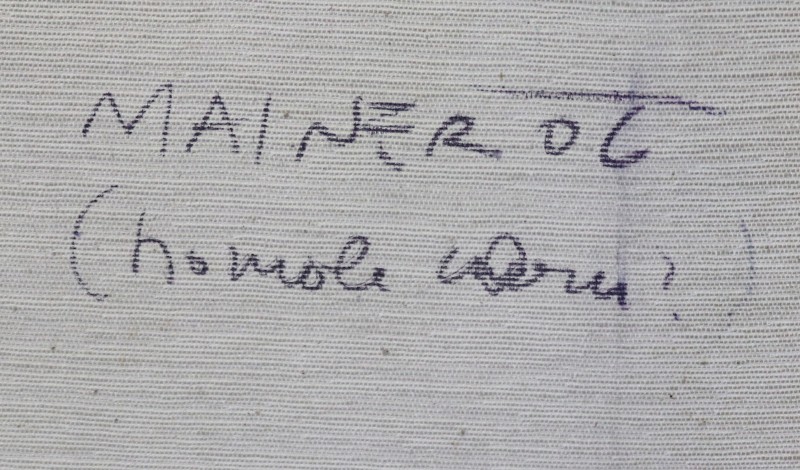 MAINER 06
(homole ?)